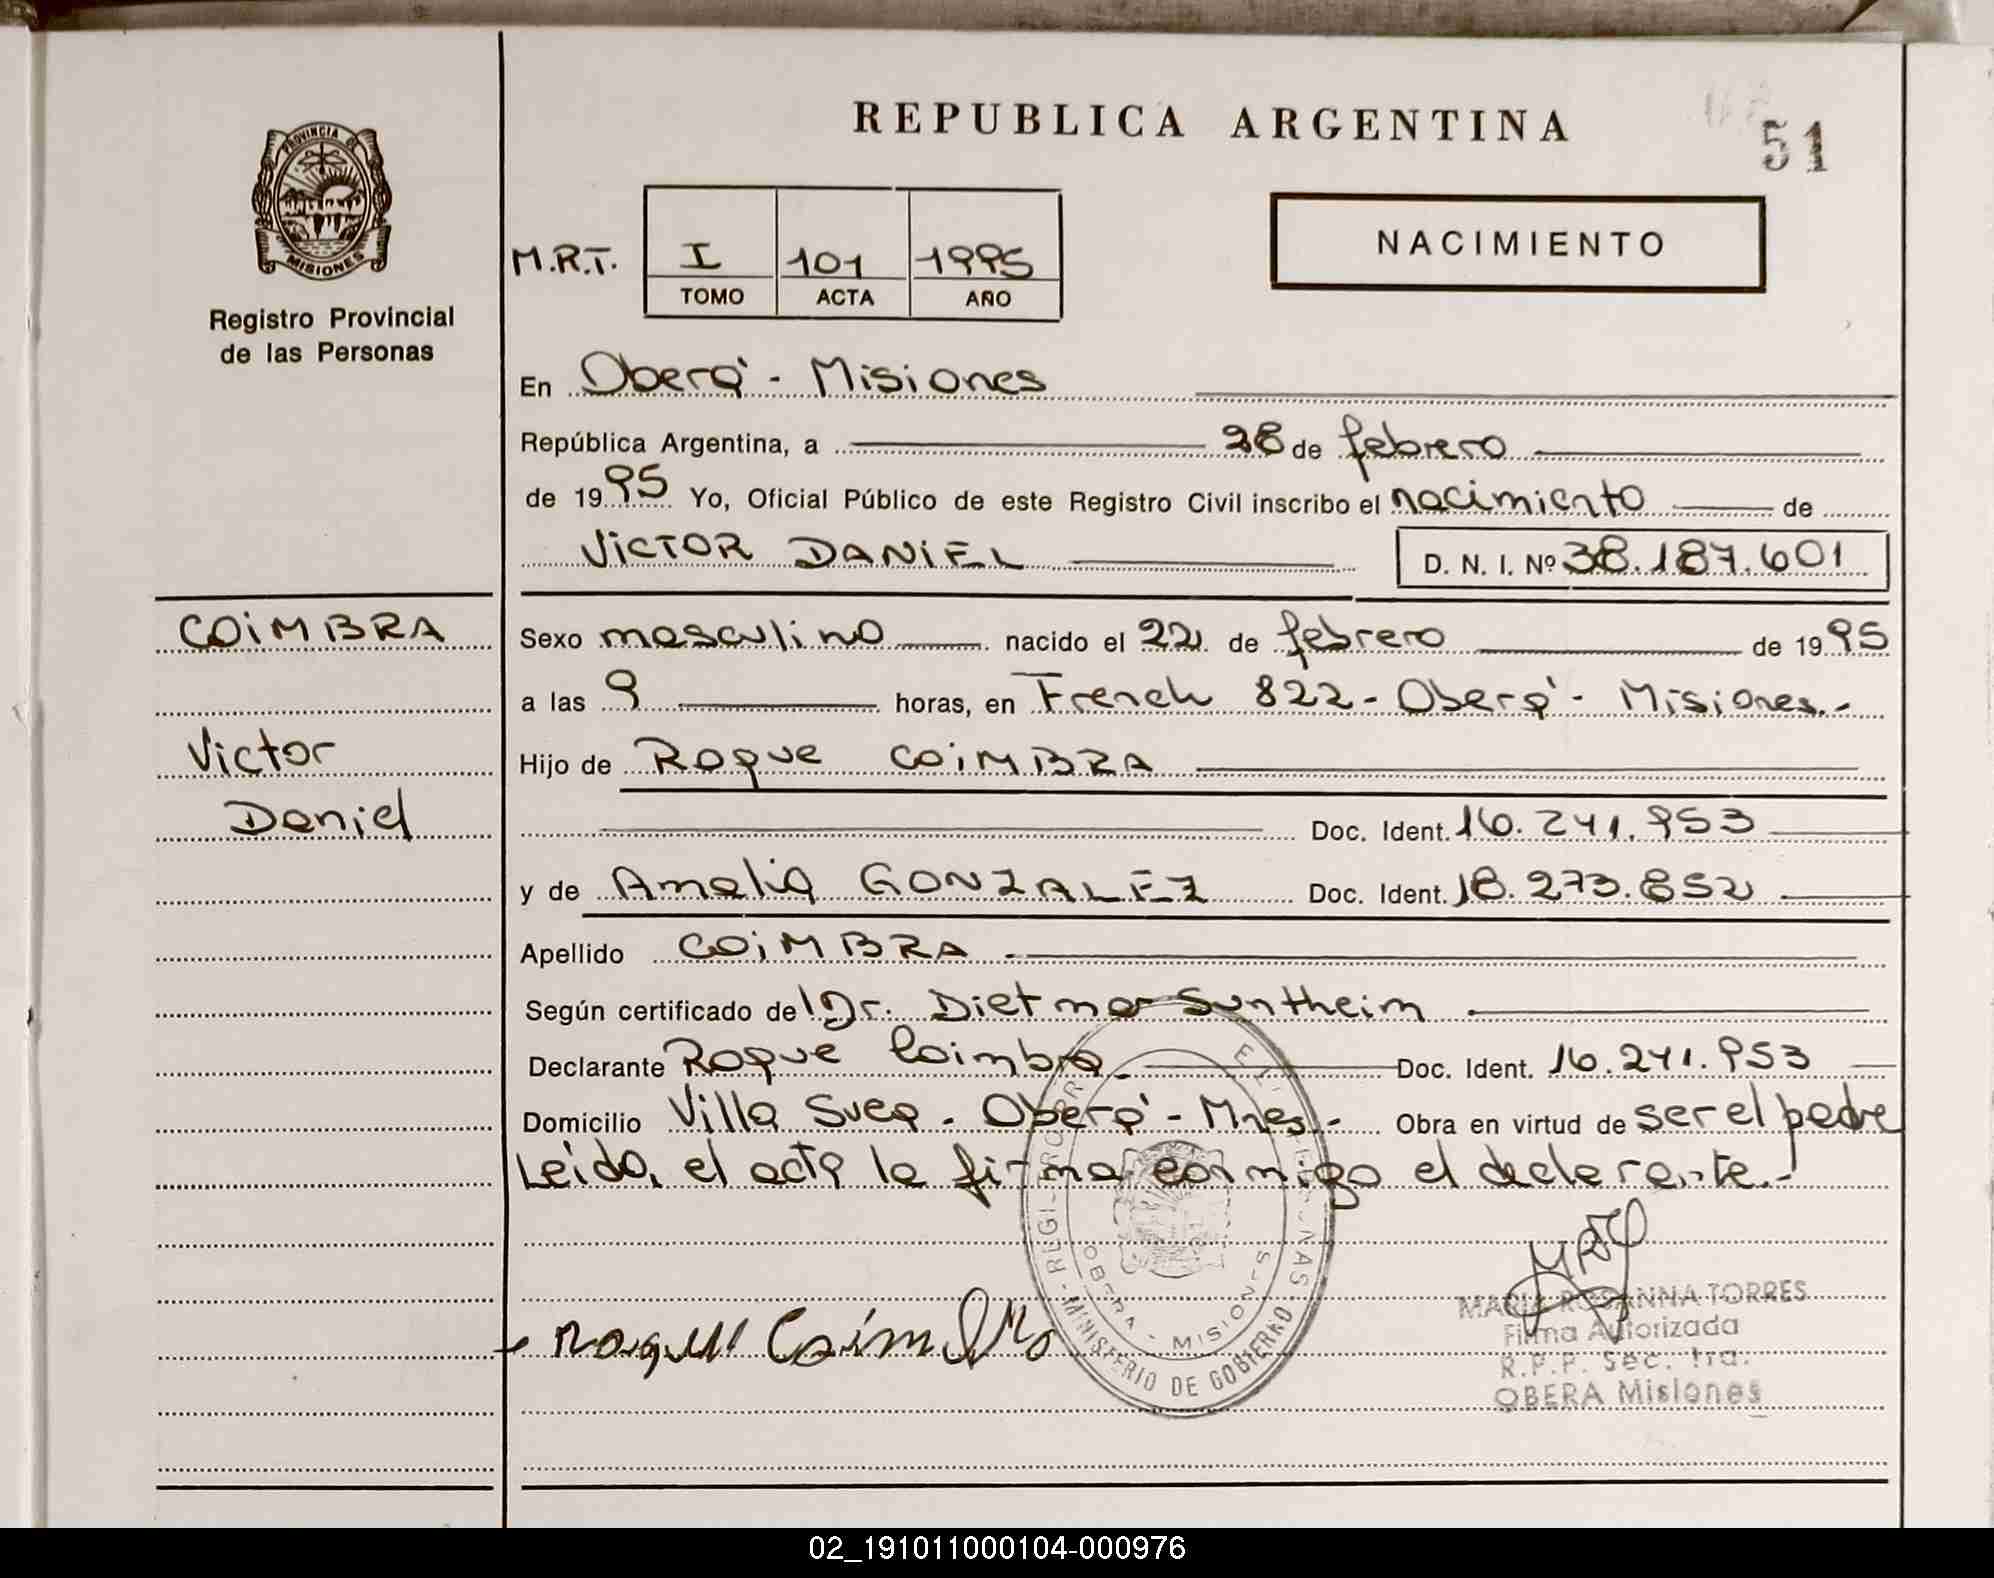 REPUBLICA ARGENTINA
51
PROVINCIA DE
MISIONES
Registro Provincial
de las Personas
M.R.T.
I 101 1995
TOMO ACTA AÑO
NACIMIENTO
En Oberá - Misiones
República Argentina, a 28 de febrero
de 1995 Yo, Oficial Público de este Registro Civil inscribo el nacimiento de
VICTOR DANIEL D. N. I. Nº 38.187.601
COIMBRA
Victor
Daniel
Sexo masculino nacido el 22 de febrero de 1995
a las 9 horas, en French 822 - Oberá - Misiones.-
Hijo de Roque COIMBRA
Doc. Ident. 16.241.953
y de Amalia GONZALEZ Doc. Ident. 18.273.852
Apellido COIMBRA
Según certificado del Dr. Dietmar Suntheim
Declarante Roque Coimbra Doc. Ident. 16.241.953
Domicilio Villa Svea - Oberá - Mnes.- Obra en virtud de ser el padre
Leida, el acta la firma conmigo el declarante.-
Roque Coimbra
MINISTERIO DE GOBIERNO
OBERA - MISIONES
MARIA ROSANNA TORRES
Firma Autorizada
R.P.P. Sec. 1ra.
OBERA Misiones
02_191011000104-000976